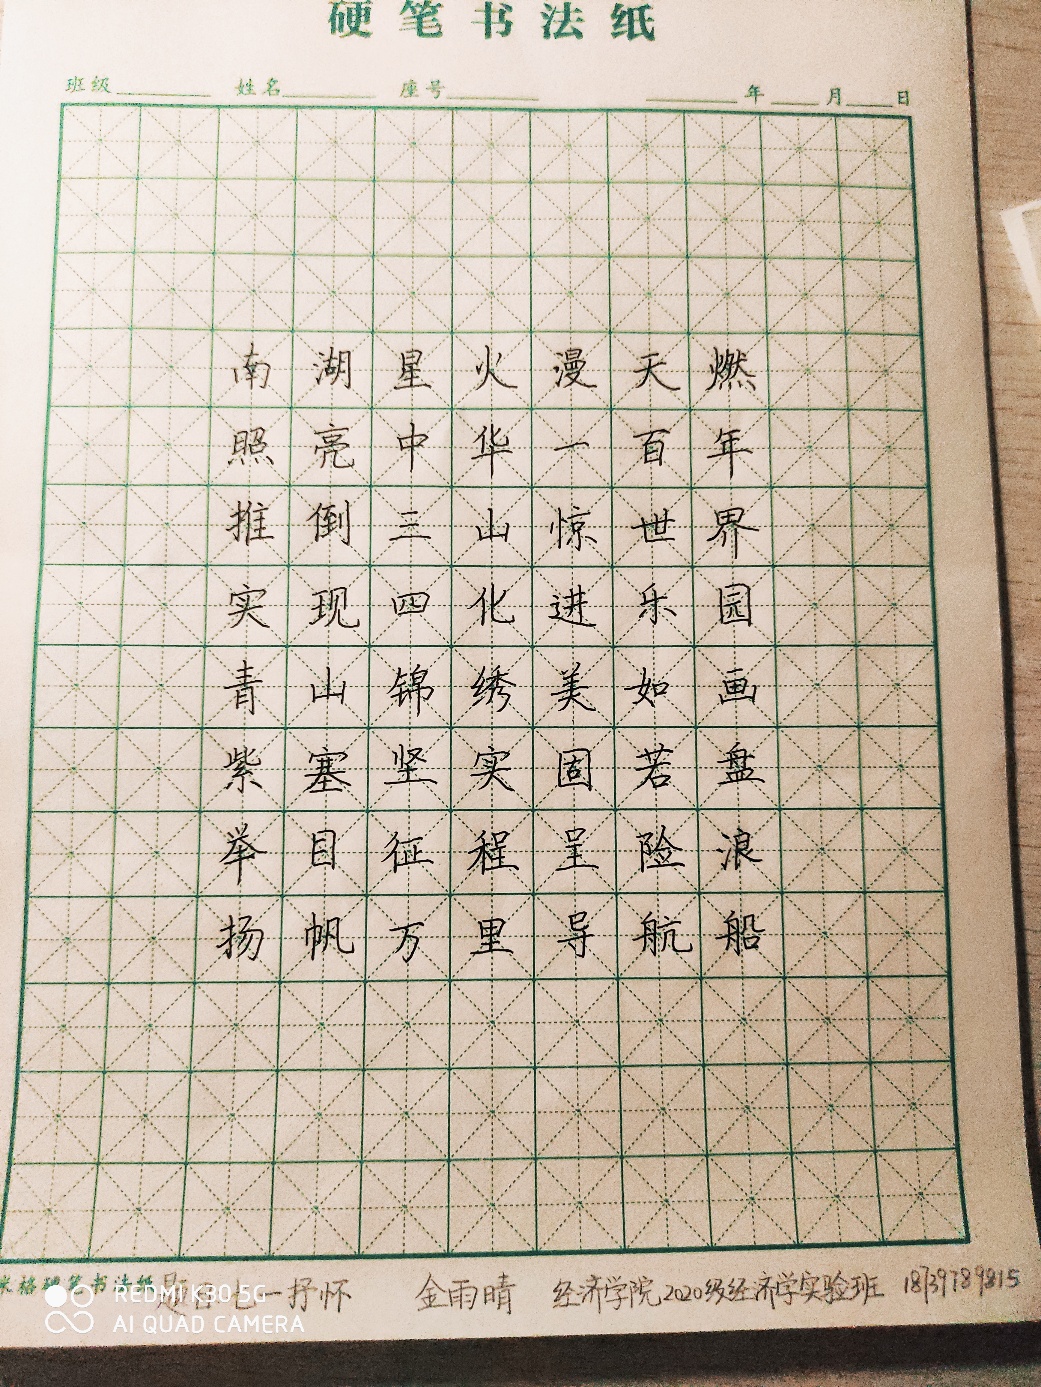 硬笔书法纸
班级 姓名 座号 年 月 日
南湖星火漫天燃
照亮中华一百年
推倒三山惊世界
实现四化进乐园
青山锦绣美如画
紫塞坚实固若盘
举目征程呈险浪
扬帆万里导航船
米格硬笔书法纸
题 七一抒怀 金雨晴 经济学院2020级经济学实验班 18739789815
REDMI K30 5G
AI QUAD CAMERA